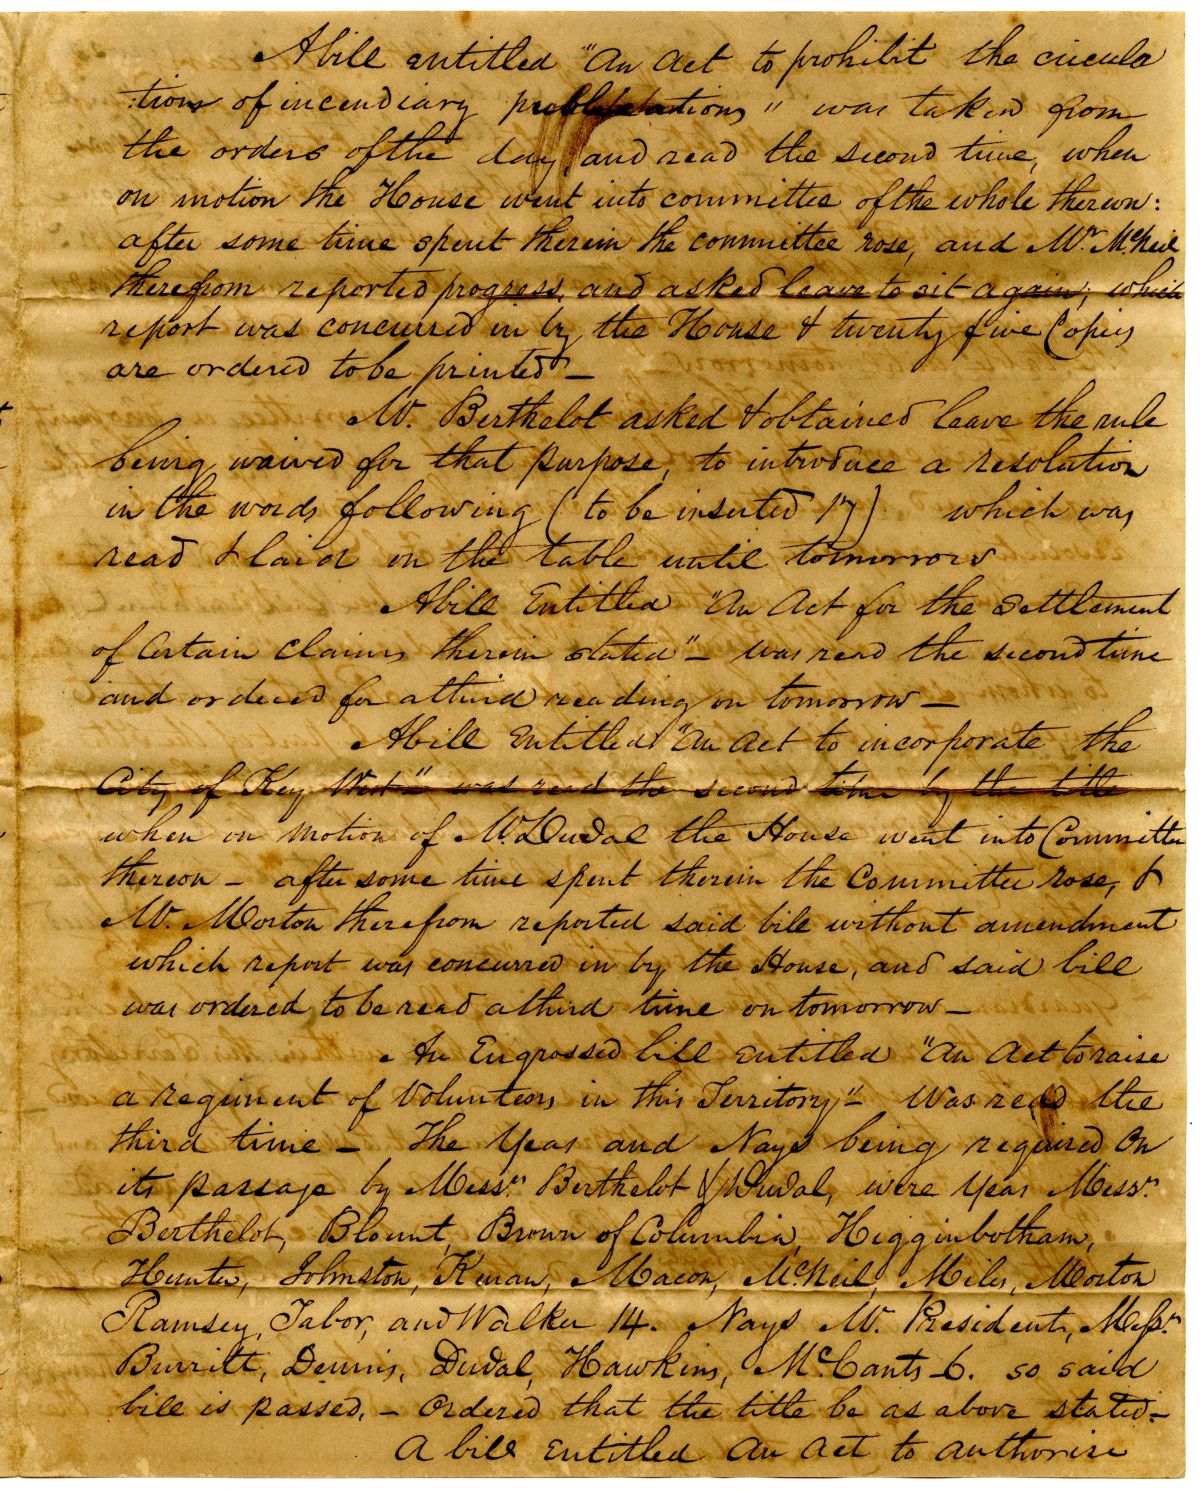 A bill entitled "An Act to prohibit the circula
:tions of incendiary publications" was taken from
the orders of the day and read the second time, when
on motion the House went into committee of the whole thereon:
after some time spent therein the committee rose, and Mr. McNeil
therefrom reported progress, and asked leave to sit again; which
report was concurred in by the House & twenty five Copies
are ordered to be printed —
Mr. Berthelot asked & obtained leave the rule
being waived for that purpose, to introduce a resolution
in the words following (to be inserted 17) which was
read & laid on the table until tomorrow
A bill Entitled "An Act for the Settlement
of Certain claims therein stated" — was read the second time
and ordered for a third reading on tomorrow —
A bill Entitled "An Act to incorporate the
City of Key West" — was read the second time by the title
when on motion of Mr. Duval the House went into Committee
thereon — after some time spent therein the Committee rose, &
Mr. Morton therefrom reported said bill without amendment
which report was concurred in by the House, and said bill
was ordered to be read a third time on tomorrow —
An Engrossed bill entitled "An Act to raise
a regiment of Volunteers in this Territory" — Was read the
third time — The Yeas and Nays being required On
its passage by Messrs. Berthelot & Duval, were Yeas Messrs.
Berthelot, Blount, Brown of Columbia, Higginbotham,
Hunter, Johnston, Kenan, Macon, McNeil, Miles, Morton
Ramsey, Tabor, and Walker 14. Nays Mr. President, Messrs.
Burritt, Dennis, Duval, Hawkins, McCants — 6. so said
bill is passed, — Ordered that the title be as above stated —
A bill Entitled An Act to authorise